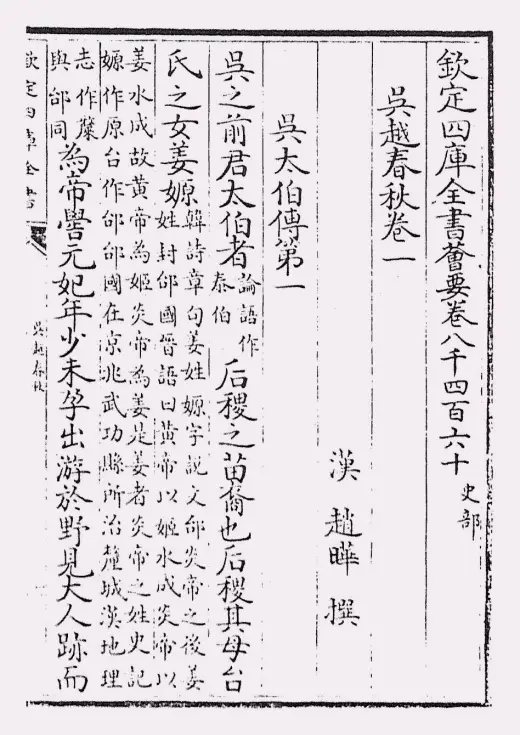 欽定四庫全書薈要卷八千四百六十 史部
吳越春秋卷一
漢 趙曄 撰
吳太伯傳第一
吳之前君太伯者
論語作
泰伯
后稷之苗裔也后稷其母台
氏之女姜嫄
韓詩章句姜姓嫄字說文邰炎帝之後姜
姓封邰國晉語曰黃帝以姬水成炎帝以
姜水成故黃帝為姬炎帝為姜是姜者炎帝之姓史記
嫄作原台作邰邰國在京兆武功縣所治釐城漢地理
志作斄
與邰同
為帝嚳元妃年少未孕出游於野見大人跡而
欽定四庫全書
吳越春秋